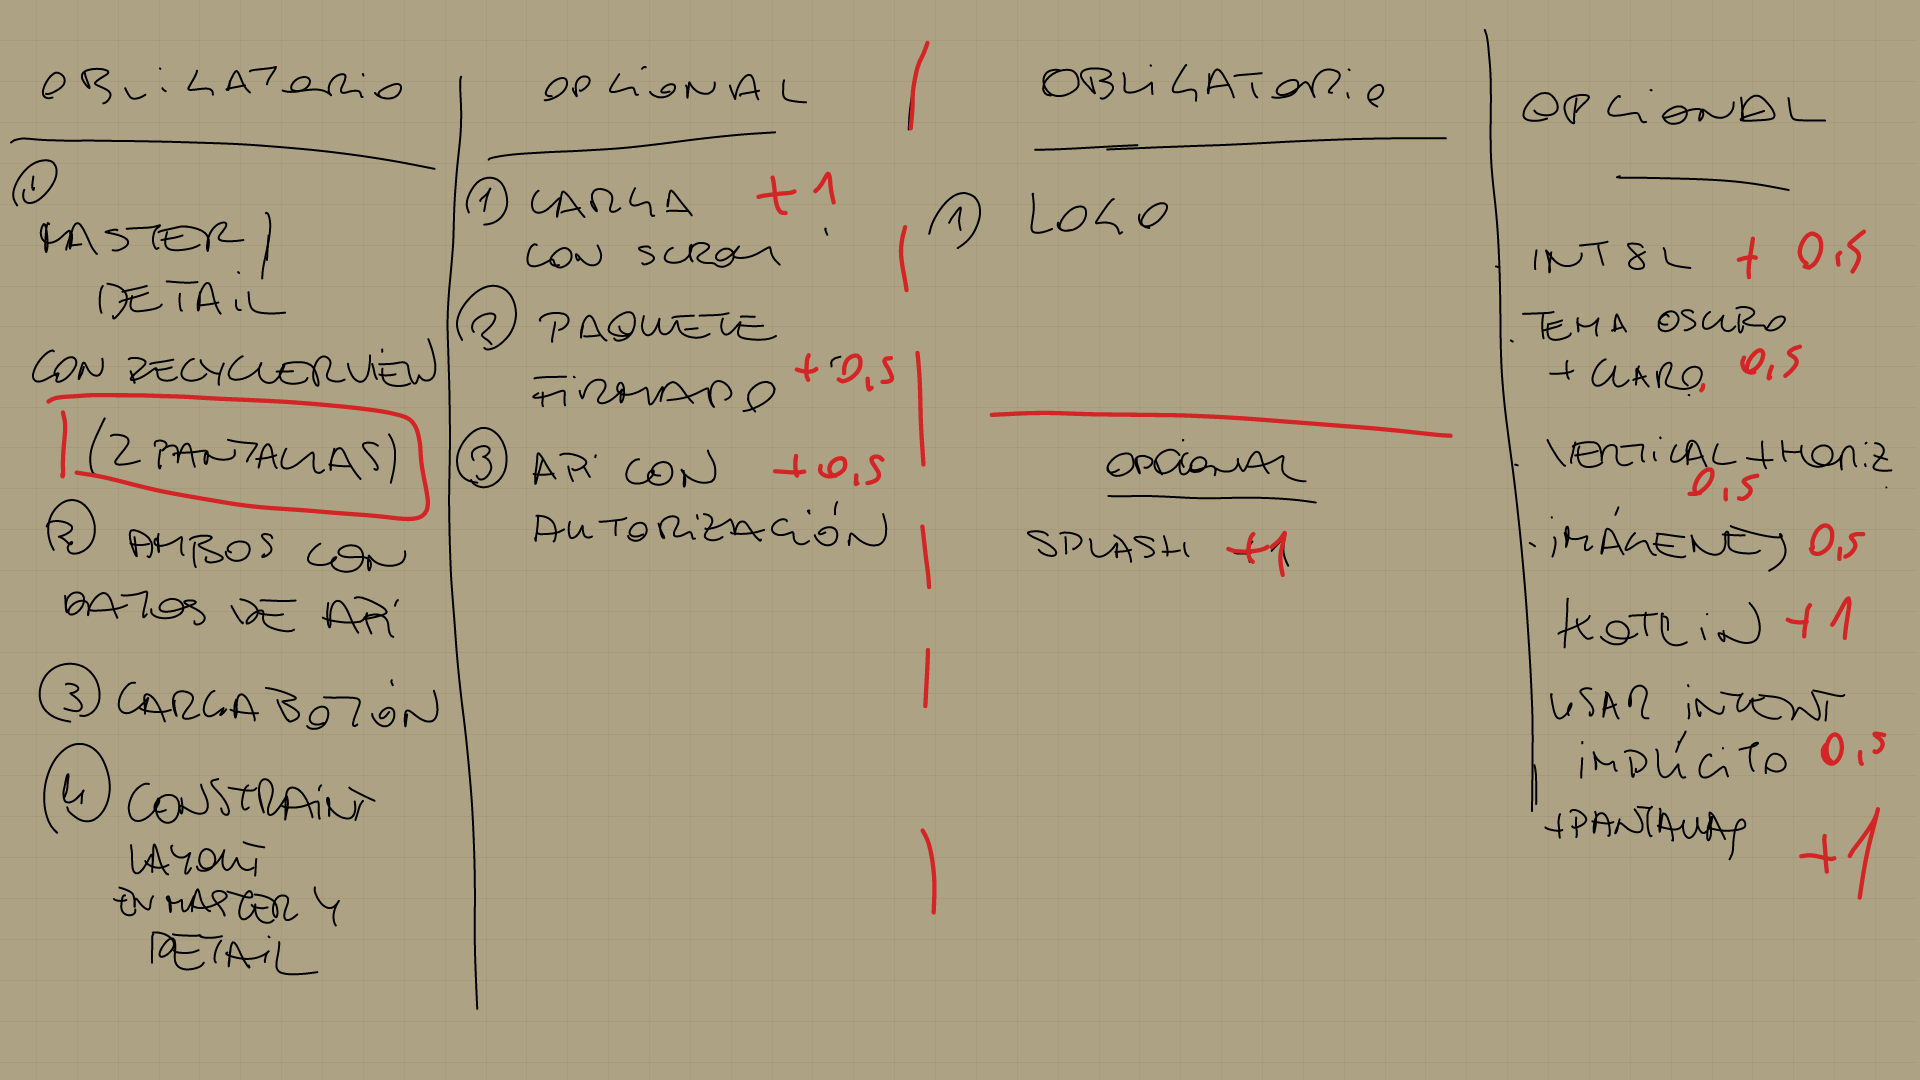 OBLIGATORIO
①
MASTER/
DETAIL
CON RECYCLERVIEW
(2 PANTALLAS)
② AMBOS CON
DATOS DE API
③ CARGA BOTÓN
④ CONSTRAINT
LAYOUT
EN MASTER Y
DETAIL
OPCIONAL
① CARGA +1
CON SCROLL
② PAQUETE
FIRMADO +0,5
③ API CON +0,5
AUTORIZACIÓN
OBLIGATORIO
① LOGO
OPCIONAL
SPLASH +1
OPCIONAL
INT8L + 0,5
. TEMA OSCURO
+ CLARO 0,5
. VERTICAL + HORIZ
0,5
. IMÁGENES 0,5
KOTLIN +1
USAR INTENT
IMPLÍCITO 0,5
+PANTALLAS
+1